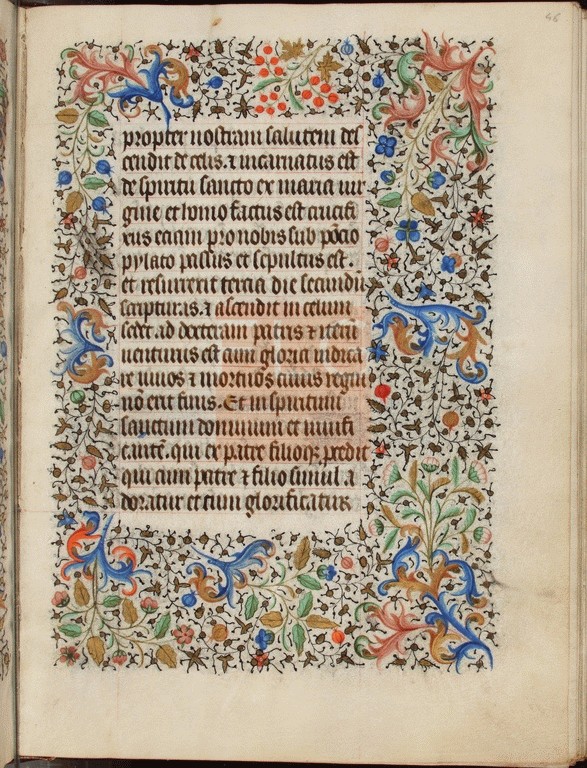 46
propter nostram salutem des
cendit de celis. ⁊ incarnatus est
de spiritu sancto ex maria vir
gine et homo factus est crucifi
xus eciam pro nobis sub põcio
pylato passus et sepultus est.
et resurrexit tercia die secundũ
scripturas. ⁊ ascendit in celum
sedet ad dexteram patris ⁊ iterũ
uenturus est cum gloria iudica
re uiuos ⁊ mortuos cuius regni
nõ erit finis. Et in spiritum
sanctum dominum et uiuifi
cantẽ. qui ex patre filioqꝫ ꝓcedit
qui cum patre ⁊ filio simul a
doratur et cum glorificatur